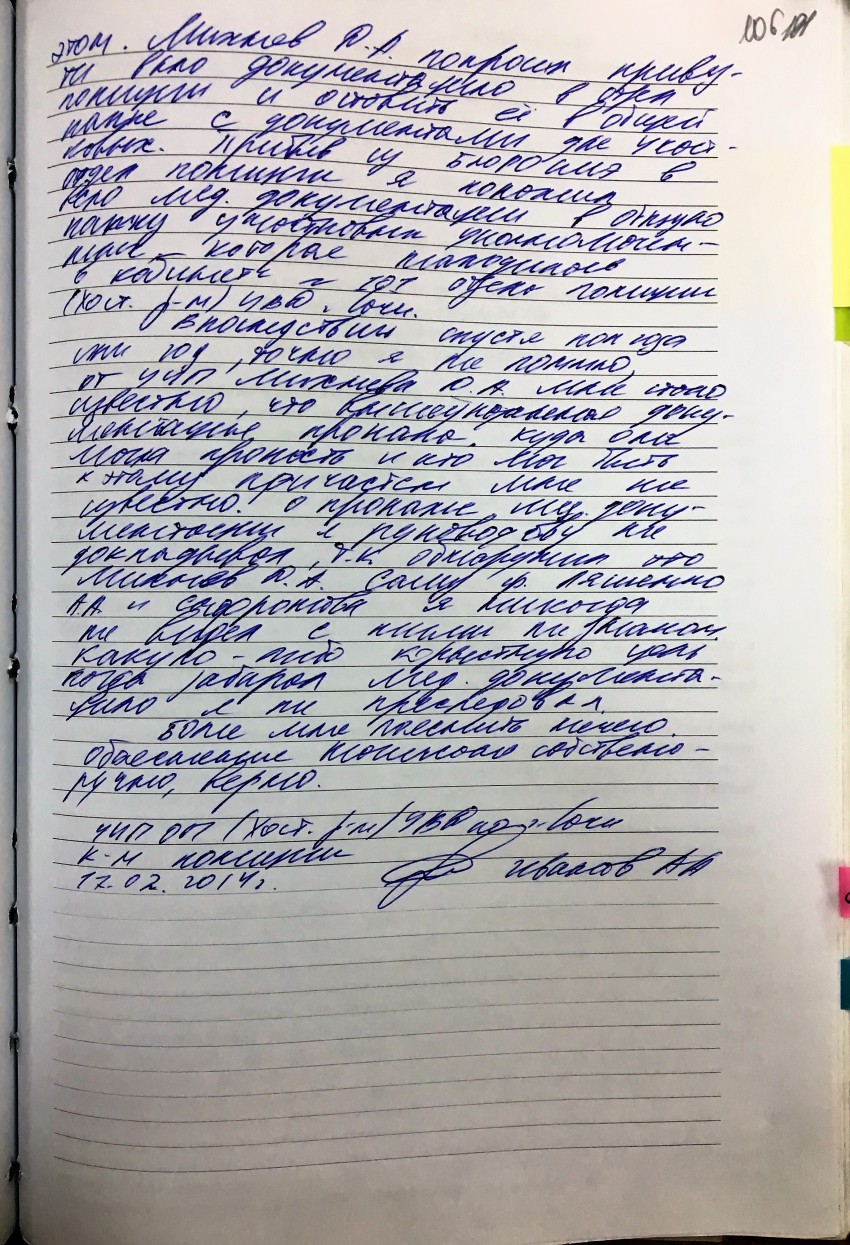 106
этом. Михнев Д.А. попросил приву-
ти всю документацию в отдел
полиции и оставить её в общей
папке с документами для участ-
ковых. Прибыв из Бюро СМЭ в
отдел полиции я положил
всю мед. документацию в общую
папку участковых уполномочен-
ных, которая находилась
в кабинете
(Хост. р-н) УВД г. Сочи.
Впоследствии спустя пол года
или год, точно я не помню,
от УУП Михнева Д.А. мне стало
известно, что вышеуказанная доку-
ментация пропала. Куда она
могла пропасть и кто мог быть
к этому причастен мне не
известно. О пропаже мед. доку-
ментации я руководству не
докладывал, т.к. обнаружил это
Михнев Д.А. Саму
А.А. и я никогда
не видел с ними не знаком.
Какую-либо корыстную цель
когда забирал мед. документа-
цию я не преследовал.
Более мне пояснить нечего.
Объяснение написано собственно-
ручно, верно.
УУП ОП (Хост. р-н) УВД по г. Сочи
к-н полиции
17.02.2014г. Иванов АА